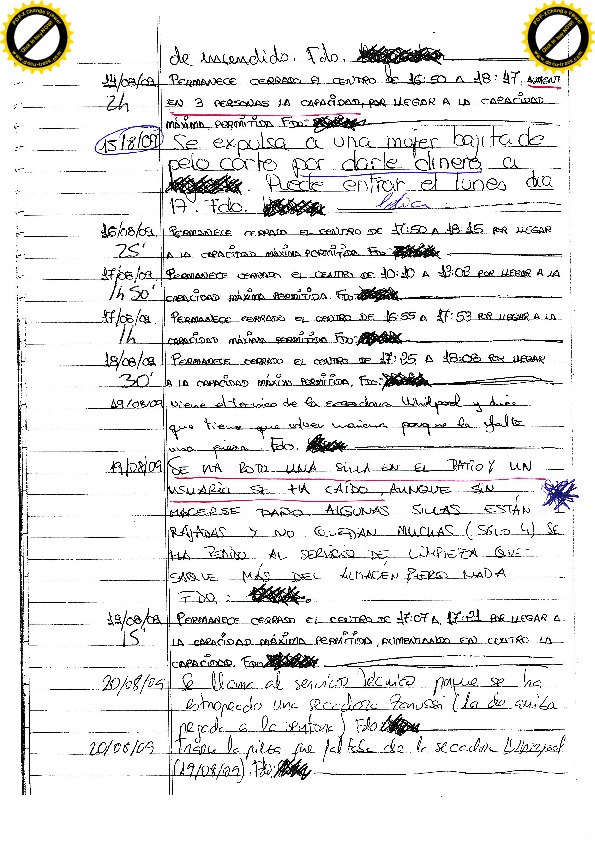 de incendido. Fdo.
14/08/09 PERMANECE CERRADO EL CENTRO DE 16:50 A 18:47, AUMENT
2h EN 3 PERSONAS LA CAPACIDAD, POR LLEGAR A LA CAPACIDAD
MÁXIMA PERMITIDA FDO:
15/8/09 Se expulsa a una mujer bajita de
pelo corto por darle dinero a
. Puede entrar el lunes dia
17. Fdo.
16/08/09 PERMANECE CERRADO EL CENTRO DE 17:50 A 18:15 POR LLEGAR
25' A LA CAPACIDAD MÁXIMA PERMITIDA FDO:
17/08/09 PERMANECE CERRADO EL CENTRO DE 10:10 A 12:02 POR LLEGAR A LA
1h 50' CAPACIDAD MÁXIMA PERMITIDA. FDO:
17/08/09 PERMANECE CERRADO EL CENTRO DE 16:55 A 17:53 POR LLEGAR A LA
1h CAPACIDAD MÁXIMA PERMITIDA FDO:
18/08/09 PERMANECE CERRADO EL CENTRO DE 17:25 A 18:08 POR LLEGAR
30' A LA CAPACIDAD MÁXIMA PERMITIDA, FDO:
19/08/09 viene el tecnico de la secadora Whirlpool y dice
que tiene que volver mañana porque le falta
una pieza. Fdo.
19/08/09 SE HA ROTO UNA SILLA EN EL PATIO Y UN
USUARIO SE HA CAÍDO, AUNQUE SIN
HACERSE DAÑO. ALGUNAS SILLAS ESTÁN
RAJADAS Y NO QUEDAN MUCHAS (SÓLO 4) SE
HA PEDIDO AL SERVICIO DE LIMPIEZA QUE
SAQUE MÁS DEL ALMACÉN PERO NADA
FDO.:
19/08/09 PERMANECE CERRADO EL CENTRO DE 17:07 A 17:21 POR LLEGAR A
15' LA CAPACIDAD MÁXIMA PERMITIDA, AUMENTANDO EN CUATRO LA
CAPACIDAD. FDO:
20/08/09 Se llama al servicio técnico porque se ha
estropeado una secadora Zanussi (la de arriba
pegada a la ventana) Fdo
20/08/09 Traen la pieza que faltaba de la secadora Whirlpool
(19/08/09). Fdo: